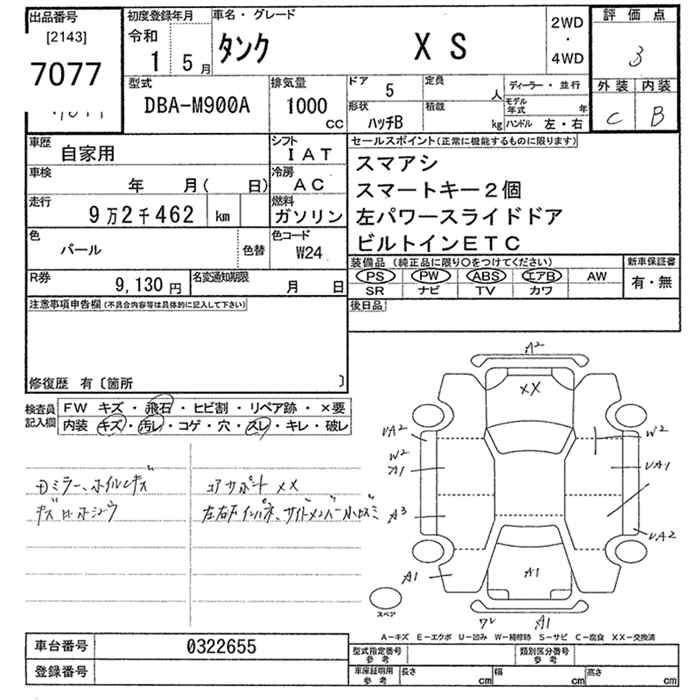 出品番号
[2143]
7077
初度登録年月
令和
1 5月
車名・グレード
タンク X S
2WD
・
4WD
評価点
3
外装 内装
C B
型式
DBA-M900A
排気量
1000
CC
ドア 5
定員 人
ディーラー・並行
形状 ハッチB
積載 kg
モデル年式 年
ハンドル 左・右
車歴 自家用
シフト IAT
車検 年 月( 日)
冷房 AC
走行 9万2千462 km
燃料 ガソリン
色 パール
色替
色コード W24
R券 9,130円
名変通知期限 月 日
セールスポイント(正常に機能するものに限ります)
スマアシ
スマートキー2個
左パワースライドドア
ビルトインETC
装備品(純正品に限り○をつけてください)
新車保証書
PS PW ABS エアB AW
SR ナビ TV カワ
有・無
後日品
注意事項申告欄(不具合内容等は具体的に記入して下さい)
修復歴 有〔箇所 〕
検査員記入欄
FW キズ・飛石・ヒビ割・リペア跡・×要
内装 キズ・汚レ・コゲ・穴・スレ・キレ・破レ
コアサポート XX
A2
XX
UA2
W2
A1
A3
A1
W2
UA1
UA2
A1
A1
スペア
A-キズ E-エクボ U-凹み W-補修跡 S-サビ C-腐食 XX-交換済
車台番号 0322655
登録番号
型式指定番号 参考
類別区分番号 参考
車庫証明用 参考
長さ cm
幅 cm
高さ cm